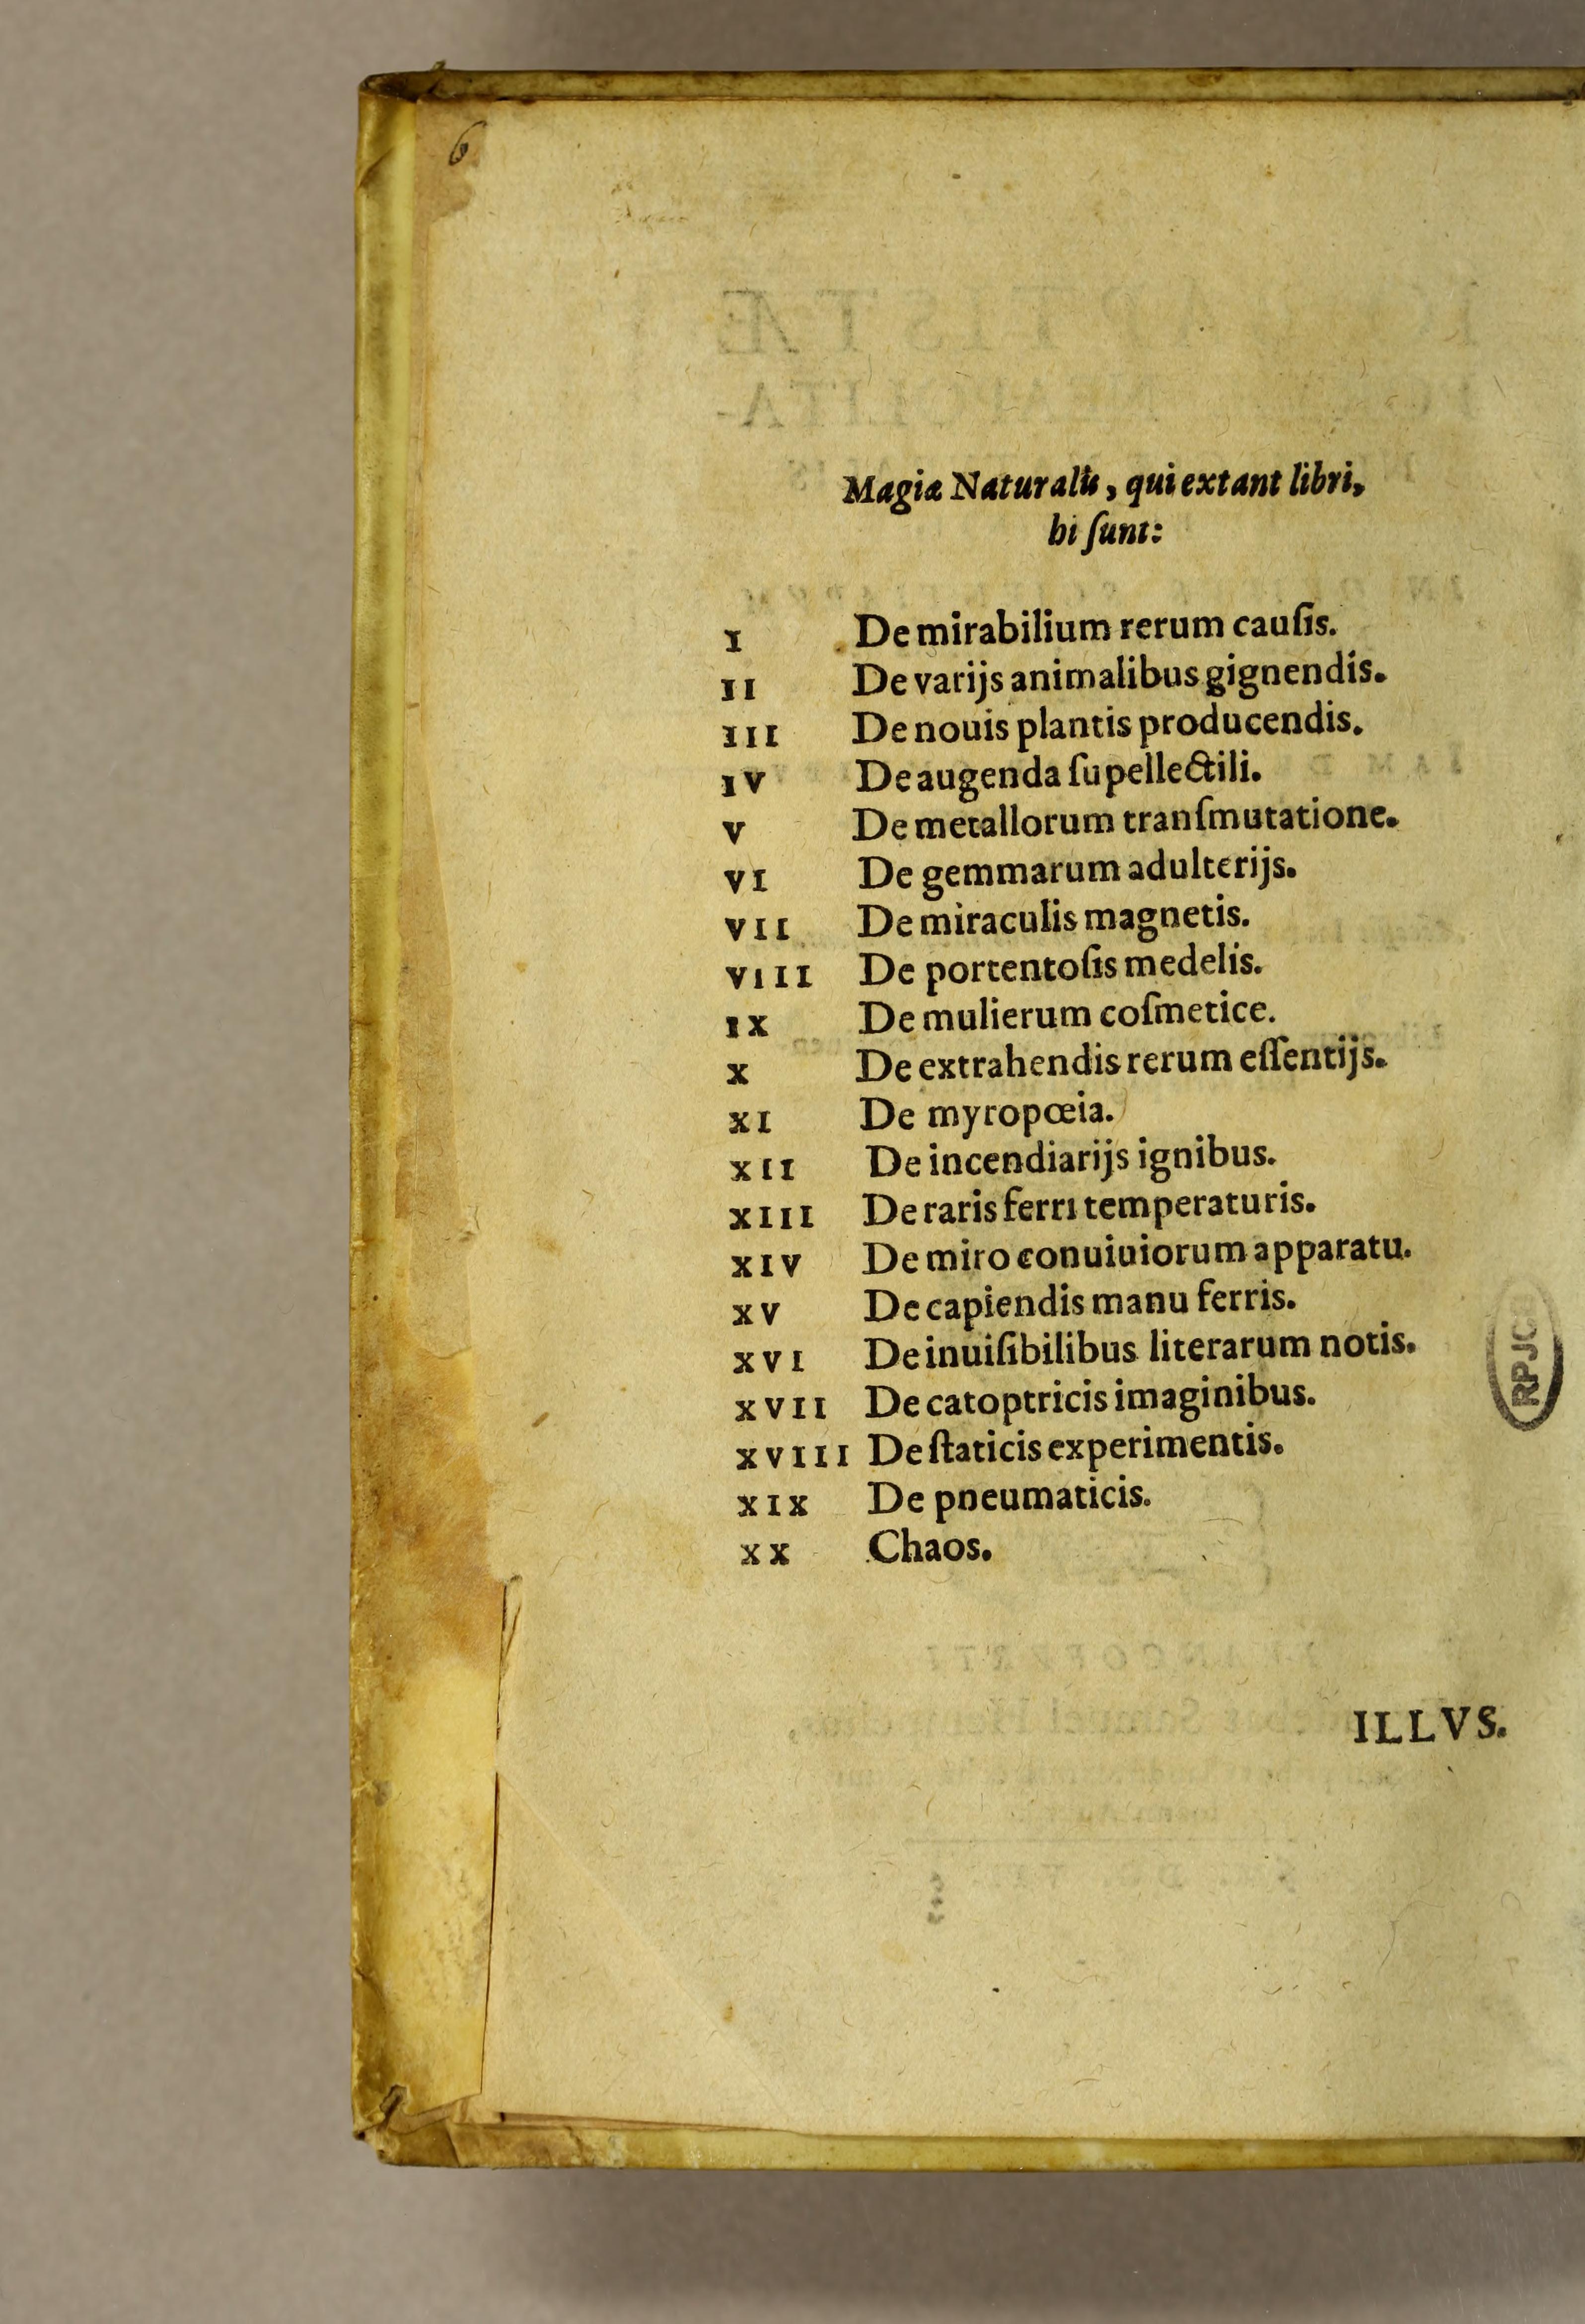 6
Magiæ Naturalis, qui extant libri,
hi ſunt:
I De mirabilium rerum cauſis.
II De varijs animalibus gignendis.
III De nouis plantis producendis.
IV De augenda ſupellectili.
V De metallorum tranſmutatione.
VI De gemmarum adulterijs.
VII De miraculis magnetis.
VIII De portentoſis medelis.
IX De mulierum coſmetice.
X De extrahendis rerum eſſentijs.
XI De myropœia.
XII De incendiarijs ignibus.
XIII De raris ferri temperaturis.
XIV De miro conuiuiorum apparatu.
XV De capiendis manu ferris.
XVI De inuiſibilibus literarum notis.
XVII De catoptricis imaginibus.
XVIII De ſtaticis experimentis.
XIX De pneumaticis.
XX Chaos.
RPJC
ILLVS.